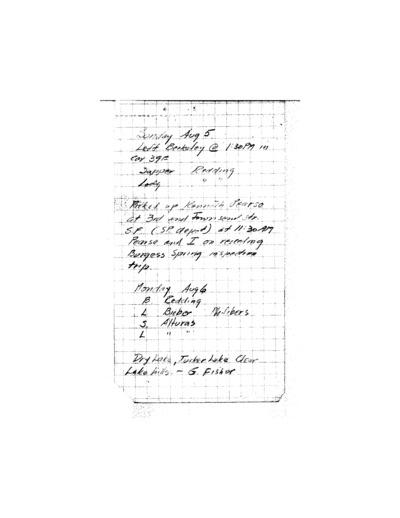 Sunday Aug 5
Left Berkeley @ 1:30 PM in
car 39E
Supper Redding
Lodg " "
Picked up Kenneth Pearse
at 3rd and Townsend Sts.
S.F. (S.P. depot) at 11:30 AM
Pearse and I on
Burgess Spring inspection
trip.
Monday Aug 6
B Redding
L Bieber
S. Alturas
L " "
Dry Lake, Tucker Lake Clear
Lake hills. - G. Fisher